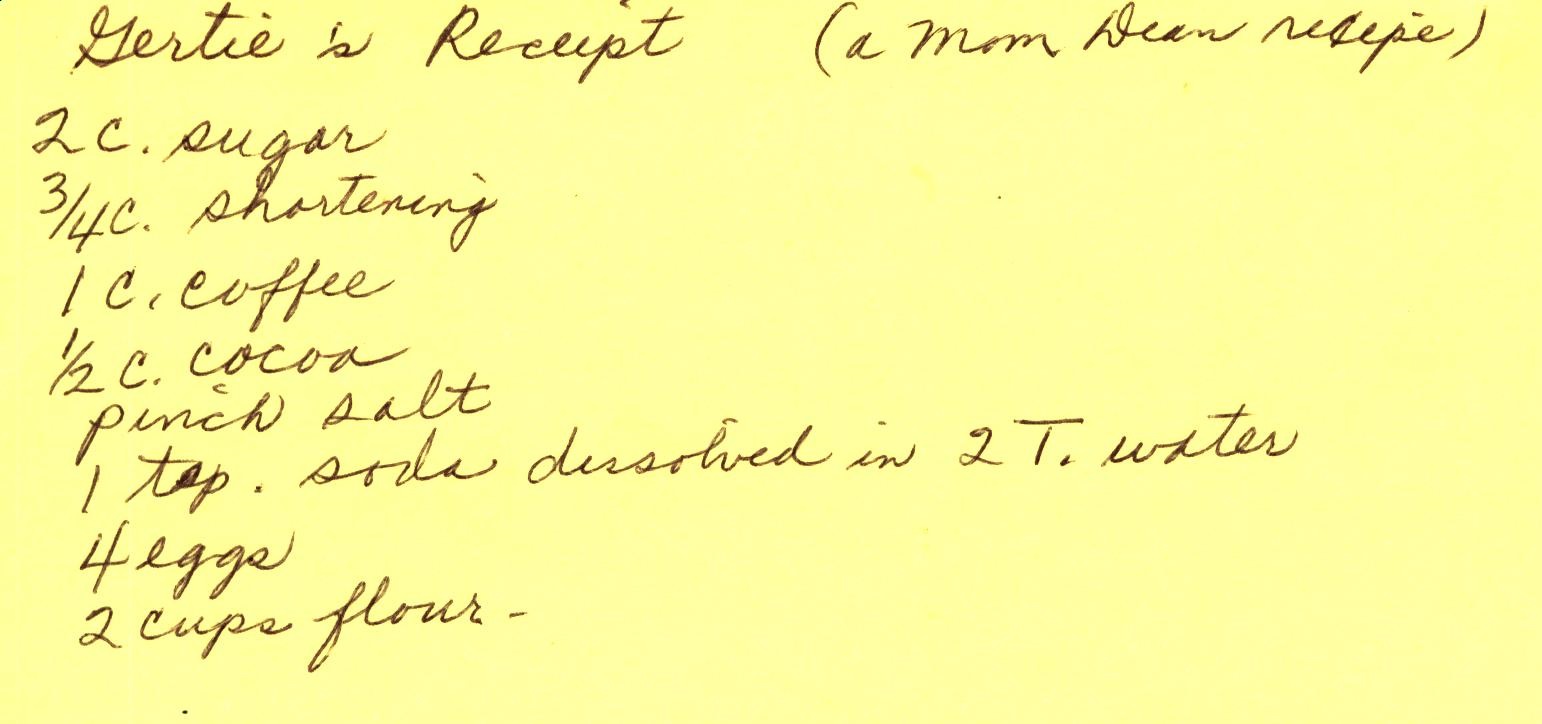 Gertie's Receipt (a Mom Dean recipe)
2 C. sugar
3/4 C. shortening
1 C. coffee
1/2 C. cocoa
pinch salt
1 tsp. soda dissolved in 2 T. water
4 eggs
2 cups flour -